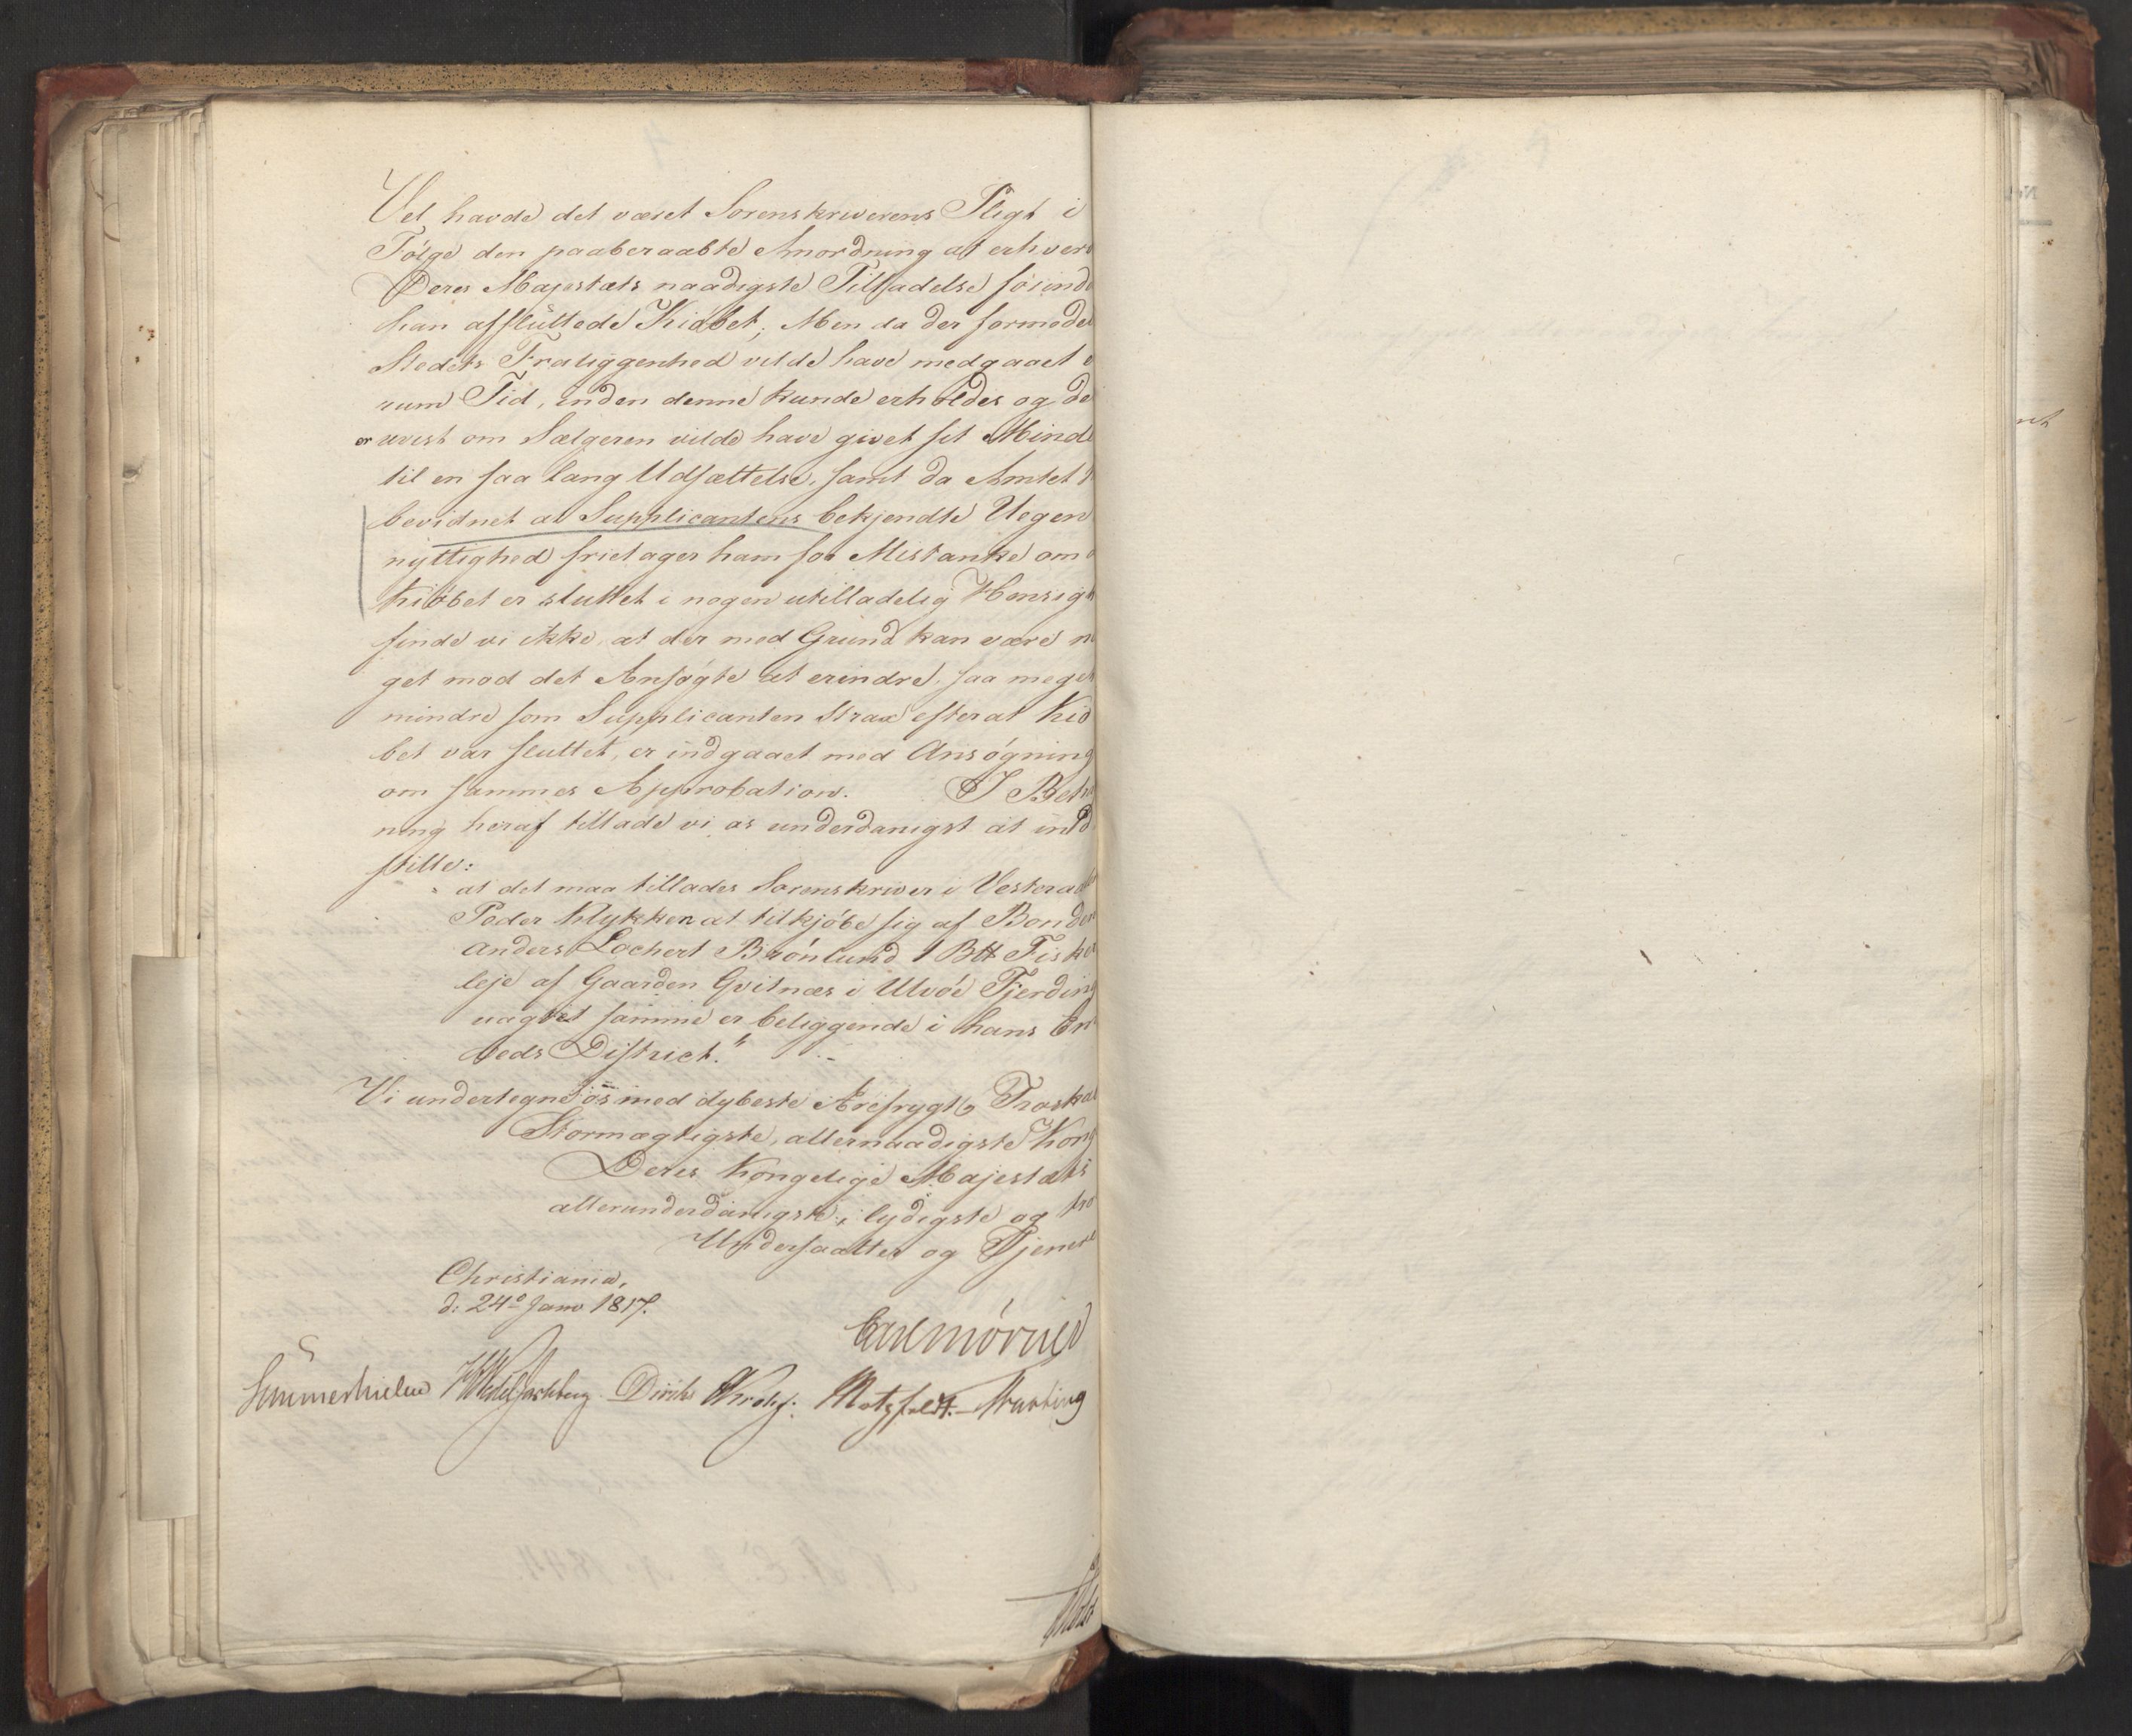 Vel havde det været Sorenskriverens Pligt i
Følge den paaberaabte Anordning at erhver
Deres Majestæts naadigste Tilladelse førend
han afsluttede Kiøbet; Men da der formedel
Stedets Fraliggenhed vilde have medgaaet e
rum Tid, inden denne kunde erholdes og de
er uvist om Sælgeren vilde have givet sit Minde
til en saa lang Udsættelse, samt da Amtet
bevidnet at Supplicantens bekjendte Uegen
nyttighed fritager ham for Mistanke om
Kiøbet er sluttet i nogen utilladelig Hensigt
finde vi ikke, at der med Grund kan være no
get mod det Ansøgte at erindre, saa meget
mindre som Supplicanten strax efter at Kiø
bet var sluttet, er indgaaet med Ansøgning
om sammes Approbation. I Beh
ning heraf tillade vi os underdanigst at ind
stille:
" at det maa tillades Sorenskriver i Vesteraal
Peder Klykken at tilkjøbe sig af Bonden
Anders Lochert Brønlund 1 B℔ Fiske
leje af Gaarden Gvitnæs i Ulvøe Fjerding
uagtet samme er beliggende i hans Em
beds District."
Vi undertegne os med dybeste Ærefrygt og Troskab
Stormægtigste, allernaadigste Kong
Deres Kongelige Majestæts
allerunderdanigste, lydigste og tro
Undersaatter og Tjenere
Christiania,
d: 24º Janv 1817.
Carl Mörner
Sommerhielm HWedelJarlsberg Diriks Krohg. Motzfeldt. Treschow